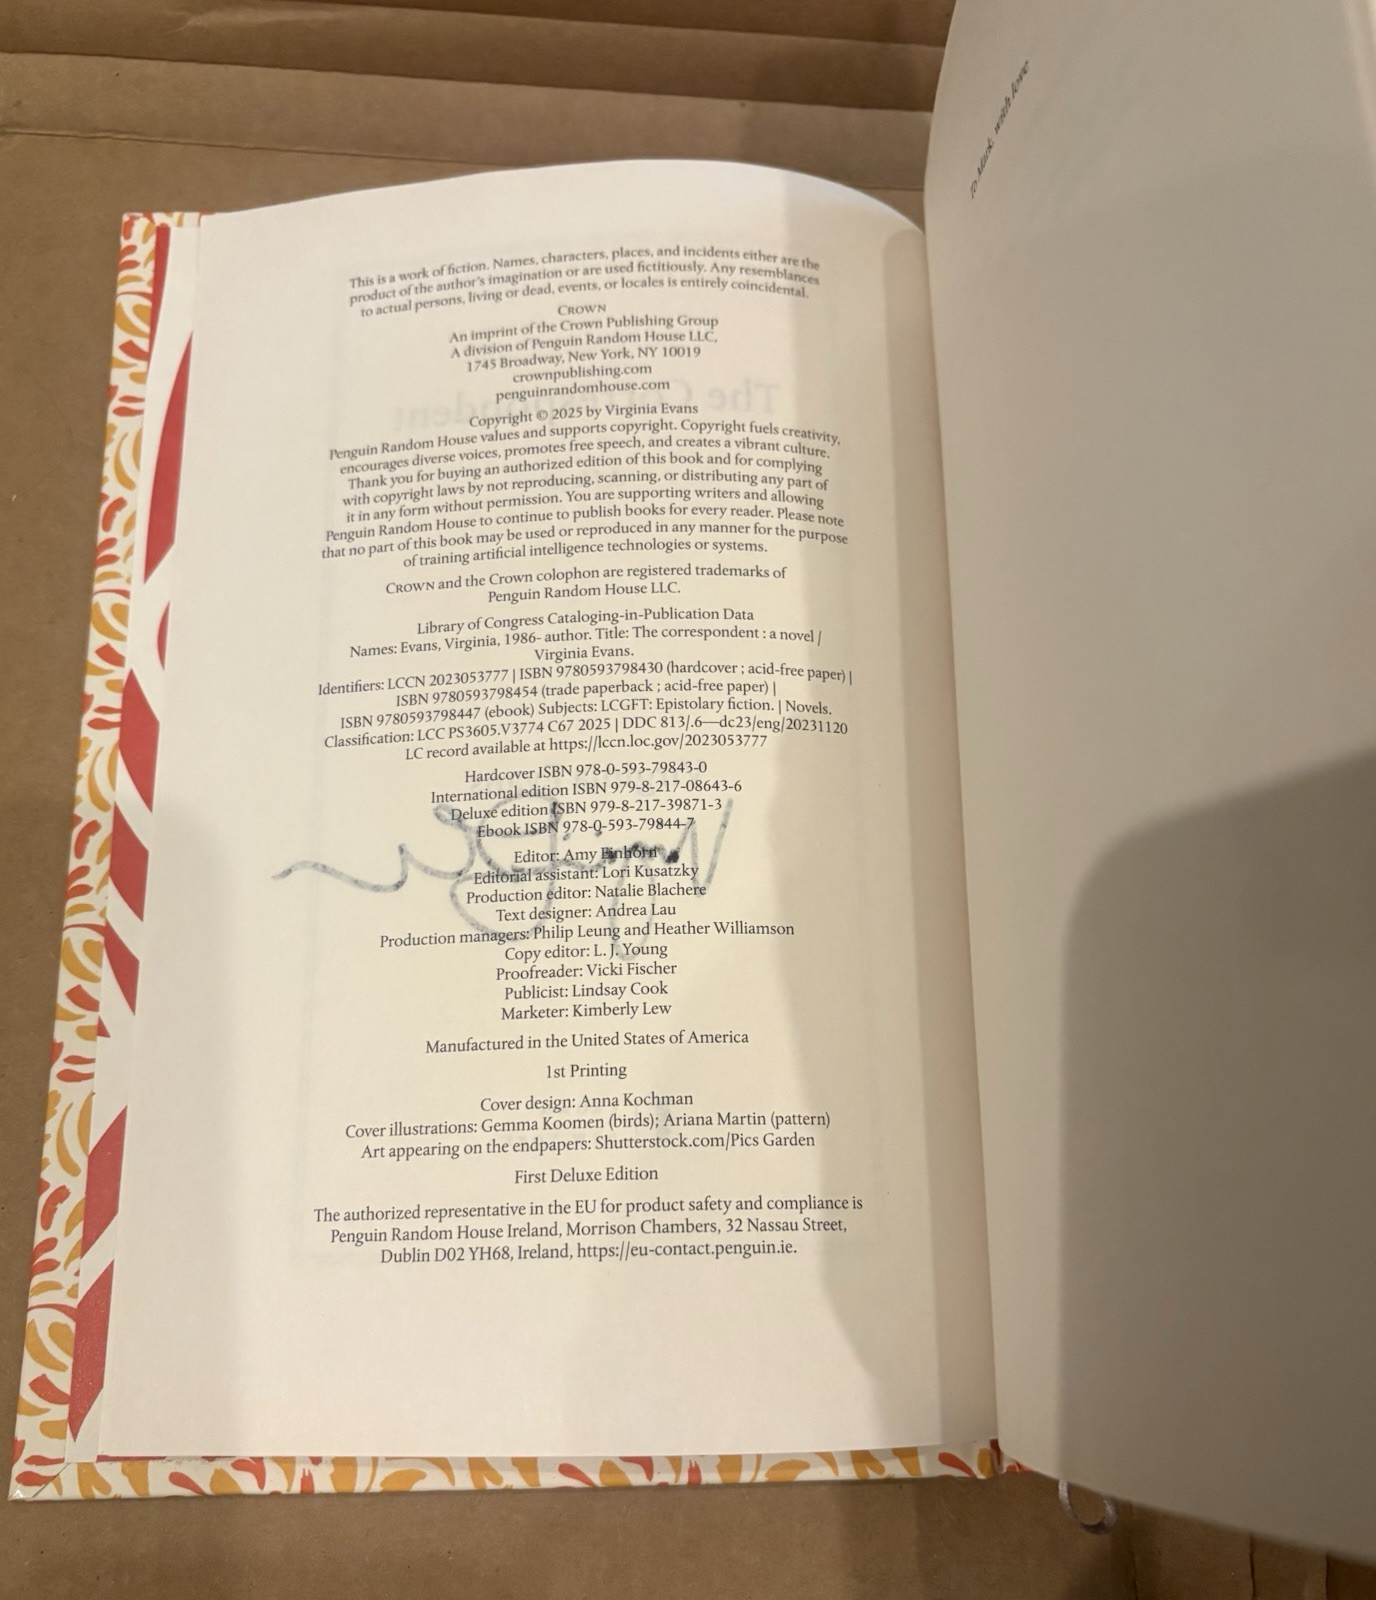 This is a work of fiction. Names, characters, places, and incidents either are the
product of the author's imagination or are used fictitiously. Any resemblances
to actual persons, living or dead, events, or locales is entirely coincidental.
CROWN
An imprint of the Crown Publishing Group
A division of Penguin Random House LLC,
1745 Broadway, New York, NY 10019
crownpublishing.com
penguinrandomhouse.com
Copyright © 2025 by Virginia Evans
Penguin Random House values and supports copyright. Copyright fuels creativity,
encourages diverse voices, promotes free speech, and creates a vibrant culture.
Thank you for buying an authorized edition of this book and for complying
with copyright laws by not reproducing, scanning, or distributing any part of
it in any form without permission. You are supporting writers and allowing
Penguin Random House to continue to publish books for every reader. Please note
that no part of this book may be used or reproduced in any manner for the purpose
of training artificial intelligence technologies or systems.
CROWN and the Crown colophon are registered trademarks of
Penguin Random House LLC.
Library of Congress Cataloging-in-Publication Data
Names: Evans, Virginia, 1986- author. Title: The correspondent : a novel /
Virginia Evans.
Identifiers: LCCN 2023053777 | ISBN 9780593798430 (hardcover ; acid-free paper) |
ISBN 9780593798454 (trade paperback ; acid-free paper) |
ISBN 9780593798447 (ebook) Subjects: LCGFT: Epistolary fiction. | Novels.
Classification: LCC PS3605.V3774 C67 2025 | DDC 813/.6—dc23/eng/20231120
LC record available at https://lccn.loc.gov/2023053777
Hardcover ISBN 978-0-593-79843-0
International edition ISBN 979-8-217-08643-6
Deluxe edition ISBN 979-8-217-39871-3
Ebook ISBN 978-0-593-79844-7
Editor: Amy Einhorn
Editorial assistant: Lori Kusatzky
Production editor: Natalie Blachere
Text designer: Andrea Lau
Production managers: Philip Leung and Heather Williamson
Copy editor: L. J. Young
Proofreader: Vicki Fischer
Publicist: Lindsay Cook
Marketer: Kimberly Lew
Manufactured in the United States of America
1st Printing
Cover design: Anna Kochman
Cover illustrations: Gemma Koomen (birds); Ariana Martin (pattern)
Art appearing on the endpapers: Shutterstock.com/Pics Garden
First Deluxe Edition
The authorized representative in the EU for product safety and compliance is
Penguin Random House Ireland, Morrison Chambers, 32 Nassau Street,
Dublin D02 YH68, Ireland, https://eu-contact.penguin.ie.
To Mark, with love